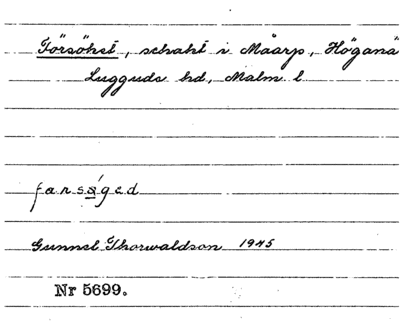 Försöket, schakt i Måarp, Höganä
Luggude hd, Malm l
farsǻged
Gunnel Thorwaldson 1945
Nr 5699.